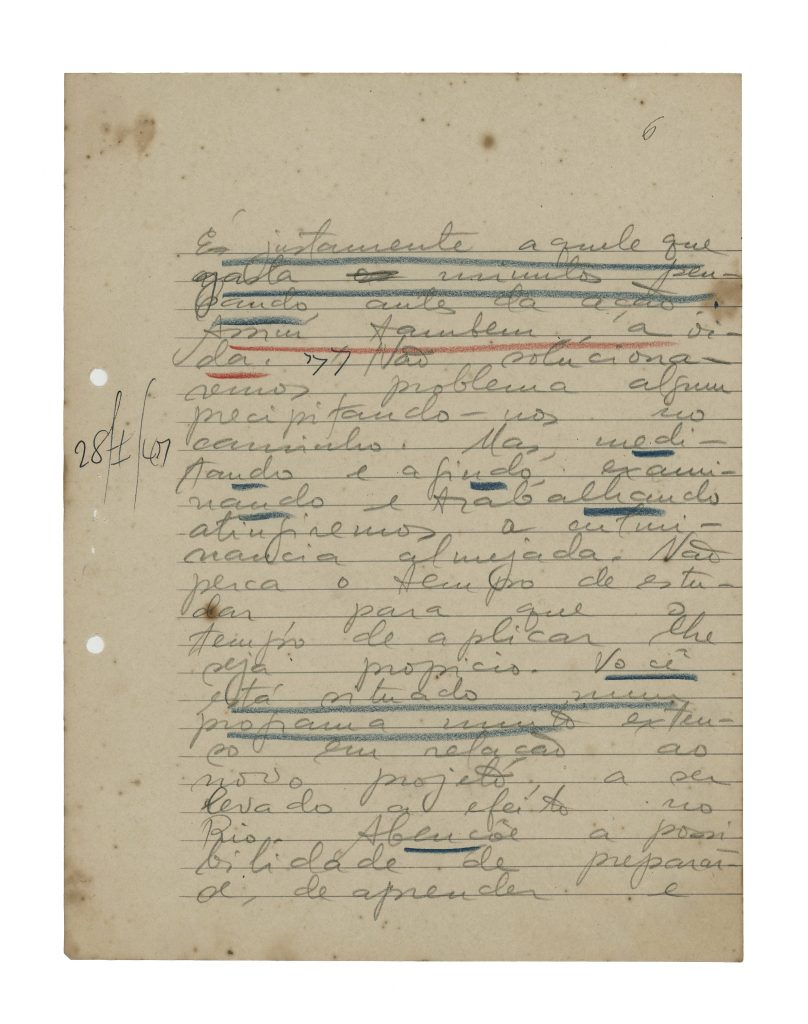 6
É justamente aquele que
gasta minutos pen-
sando antes da ação.
Assim tambem "a vi-
da. >> Não soluciona-
remos problema algum
precipitando-nos no
caminho. Mas, medi-
tando e agindo, exami-
nando e trabalhando
atingiremos a culmi-
nancia almejada. Não
perca o tempo de estu-
dar para que o
tempo de aplicar lhe
seja propicio. Você
está situado num
programa muito exten-
so em relação ao
novo projeto, a ser
levado a efeito no
Rio. Abençôe a possi
bilidade de preparar-
se, de aprender e